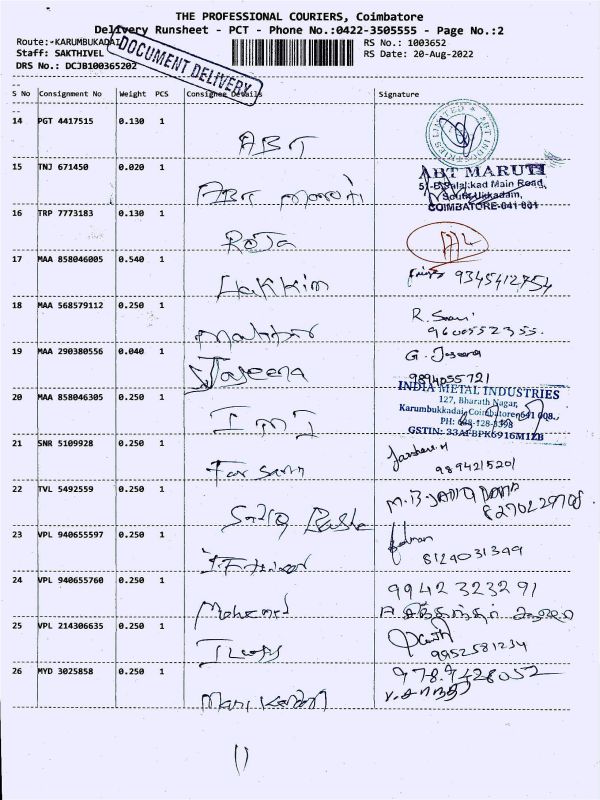 THE PROFESSIONAL COURIERS, Coimbatore
Delivery Runsheet - PCT - Phone No.:0422-3505555 - Page No.:2
Route:-KARUMBUKADAI RS No.: 1003652
Staff: SAKTHIVEL RS Date: 20-Aug-2022
DRS No.: DCJB100365202
DOCUMENT DELIVERY
S No Consignment No Weight PCS Consignee Details Signature
14 PGT 4417515 0.130 1 ABT
15 TNJ 671450 0.020 1 ABT Maruti
ABT MARUTI
Palakkad Main Road,
South Ukkadam,
COIMBATORE-641 001
16 TRP 7773183 0.130 1 Roja
17 MAA 858046005 0.540 1 Hakkim 9345412754
18 MAA 568579112 0.250 1 R. 9600552355.
19 MAA 290380556 0.040 1 Jaseena G. Jaseena
9894055721
20 MAA 858046305 0.250 1 IMI
INDIA METAL INDUSTRIES
127, Bharath Nagar,
Karumbukkadai, Coimbatore-641 008.
GSTIN: 33AFBPK6916M1ZB
21 SNR 5109928 0.250 1 9894215201
22 TVL 5492559 0.250 1 Sadiq Basha M.B. 8270229708.
23 VPL 940655597 0.250 1 8124031349
24 VPL 940655760 0.250 1 Mohamed 9942323291
25 VPL 214306635 0.250 1 9952581234
26 MYD 3025858 0.250 1 Mani kandan 9789428052